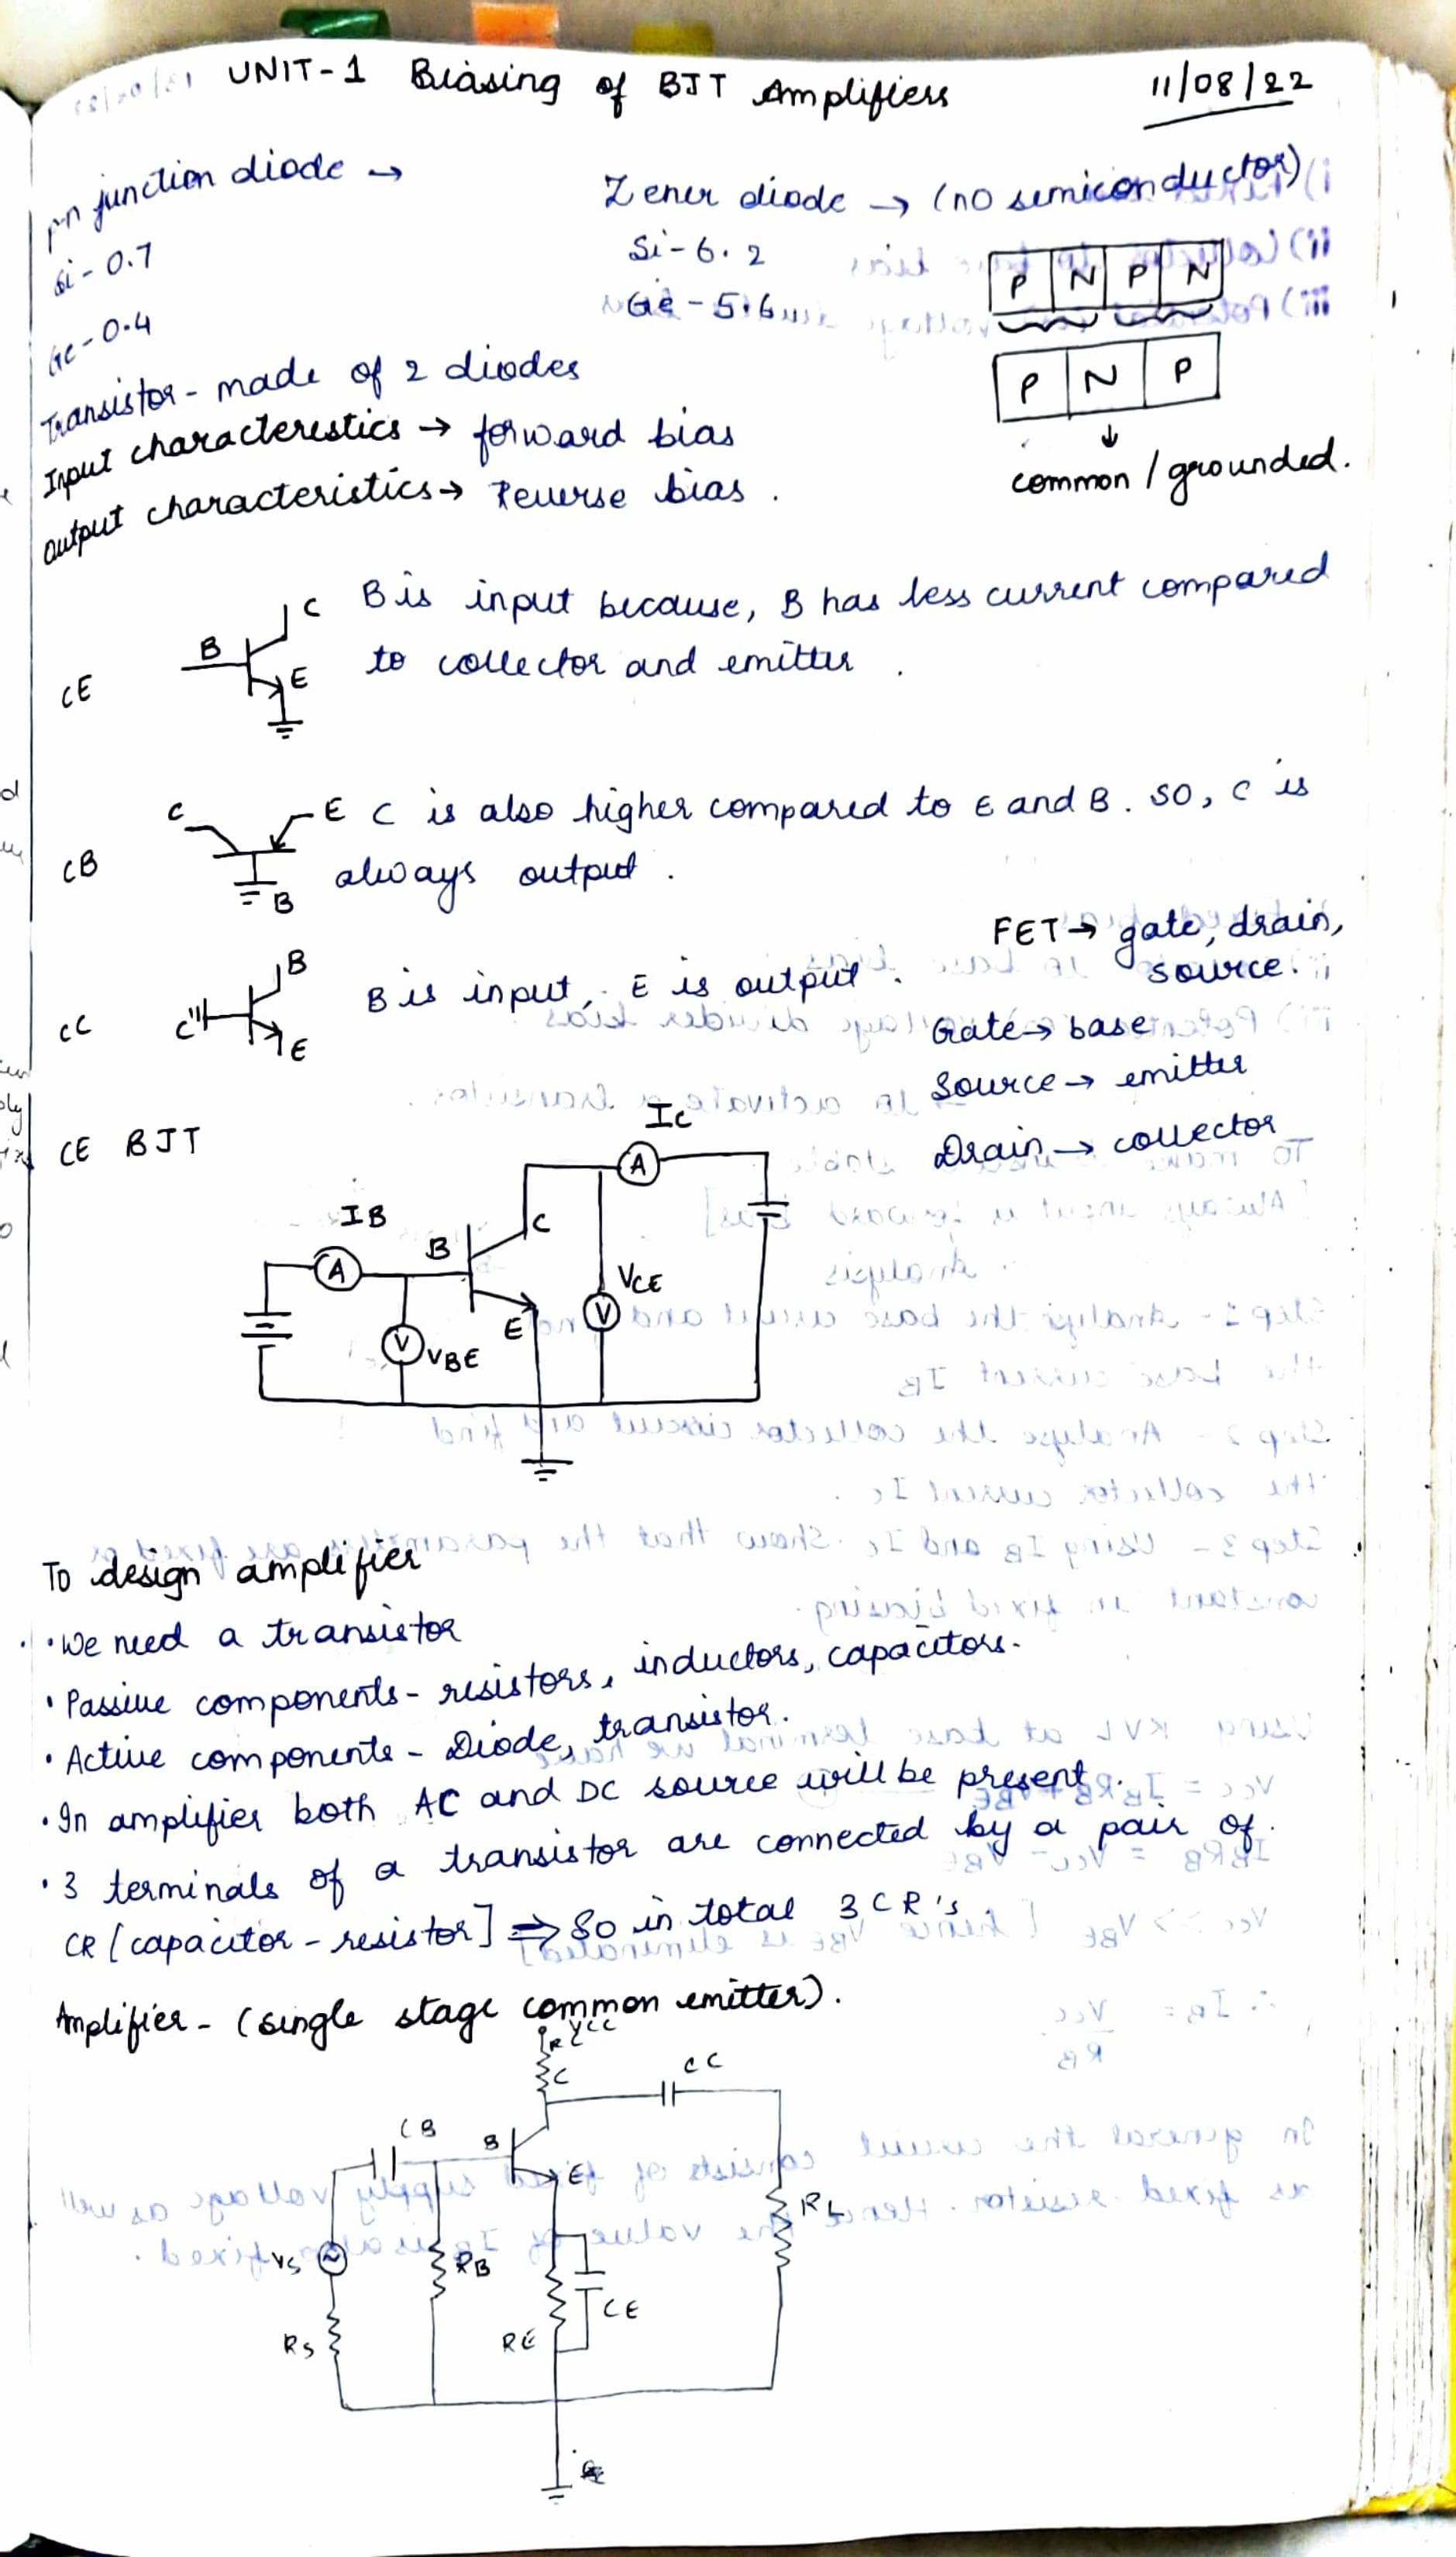 UNIT-1 Biasing of BJT Amplifiers
11/08/22
pn junction diode →
Si - 0.7
Ge - 0.4
Zener diode → (no semiconductor)
Si - 6.2
Ge - 5.6
P N P N
P N P
common / grounded.
Transistor - made of 2 diodes
Input characterestics → forward bias
Output characteristics → Reverse bias.
CE
B
C
E
B is input because, B has less current compared
to collector and emitter.
CB
C
E
B
C is also higher compared to E and B. SO, C is
always output.
CC
B
C
E
B is input, E is output.
FET → gate, drain,
source.
Gate → base
Source → emitter
Drain → collector
CE BJT
IC
A
IB
A
B
C
E
V
VBE
VCE
V
To design amplifier
• We need a transistor
• Passive components - resistors, inductors, capacitors.
• Active components - Diode, transistor.
• In amplifier both AC and DC source will be present.
• 3 terminals of a transistor are connected by a pair of
CR [capacitor - resistor] ⇒ So in total 3 CR's.
Amplifier - (single stage common emitter).
VCC
RC
CC
CB
B
E
RL
VS
RB
CE
RE
RS